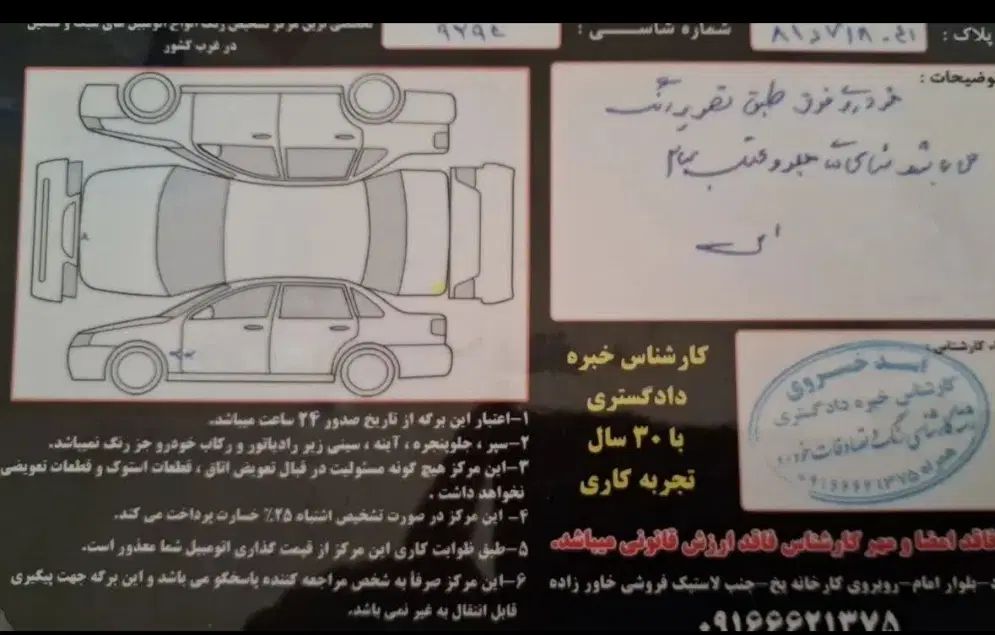 تخصصی ترین مرکز تشخیص رنگ انواع اتومبیل های سبک و سنگین
در غرب کشور
شماره شاسی :
پلاک :
توضیحات :
خودرو فوق طبق تصویر رنگ
می باشد شاسی های جلو و عقب سالم
کارشناس خبره
دادگستری
با ۳۰ سال
تجربه کاری
خسروی
کارشناس خبره دادگستری
همراه ۰۹۱۶۶۶۲۱۳۷۵
۱–اعتبار این برگه از تاریخ صدور ۲۴ ساعت میباشد.
۲–سپر ، جلوپنجره ، آینه ، سینی زیر رادیاتور و رکاب خودرو جز رنگ نمیباشد.
۳–این مرکز هیچ گونه مسئولیت در قبال تعویض اتاق ، قطعات استوک و قطعات تعویضی
نخواهد داشت .
۴– این مرکز در صورت تشخیص اشتباه ۲۵٪ خسارت پرداخت می کند.
۵–طبق ظوابت کاری این مرکز از قیمت گذاری اتومبیل شما معذور است.
۶–این مرکز صرفاً به شخص مراجعه کننده پاسخگو می باشد و این برگه جهت پیگیری
قابل انتقال به غیر نمی باشد.
فاقد امضا و مهر کارشناس فاقد ارزش قانونی میباشد.
بلوار امام–روبروی کارخانه یخ–جنب لاستیک فروشی خاور زاده
۰۹۱۶۶۶۲۱۳۷۵